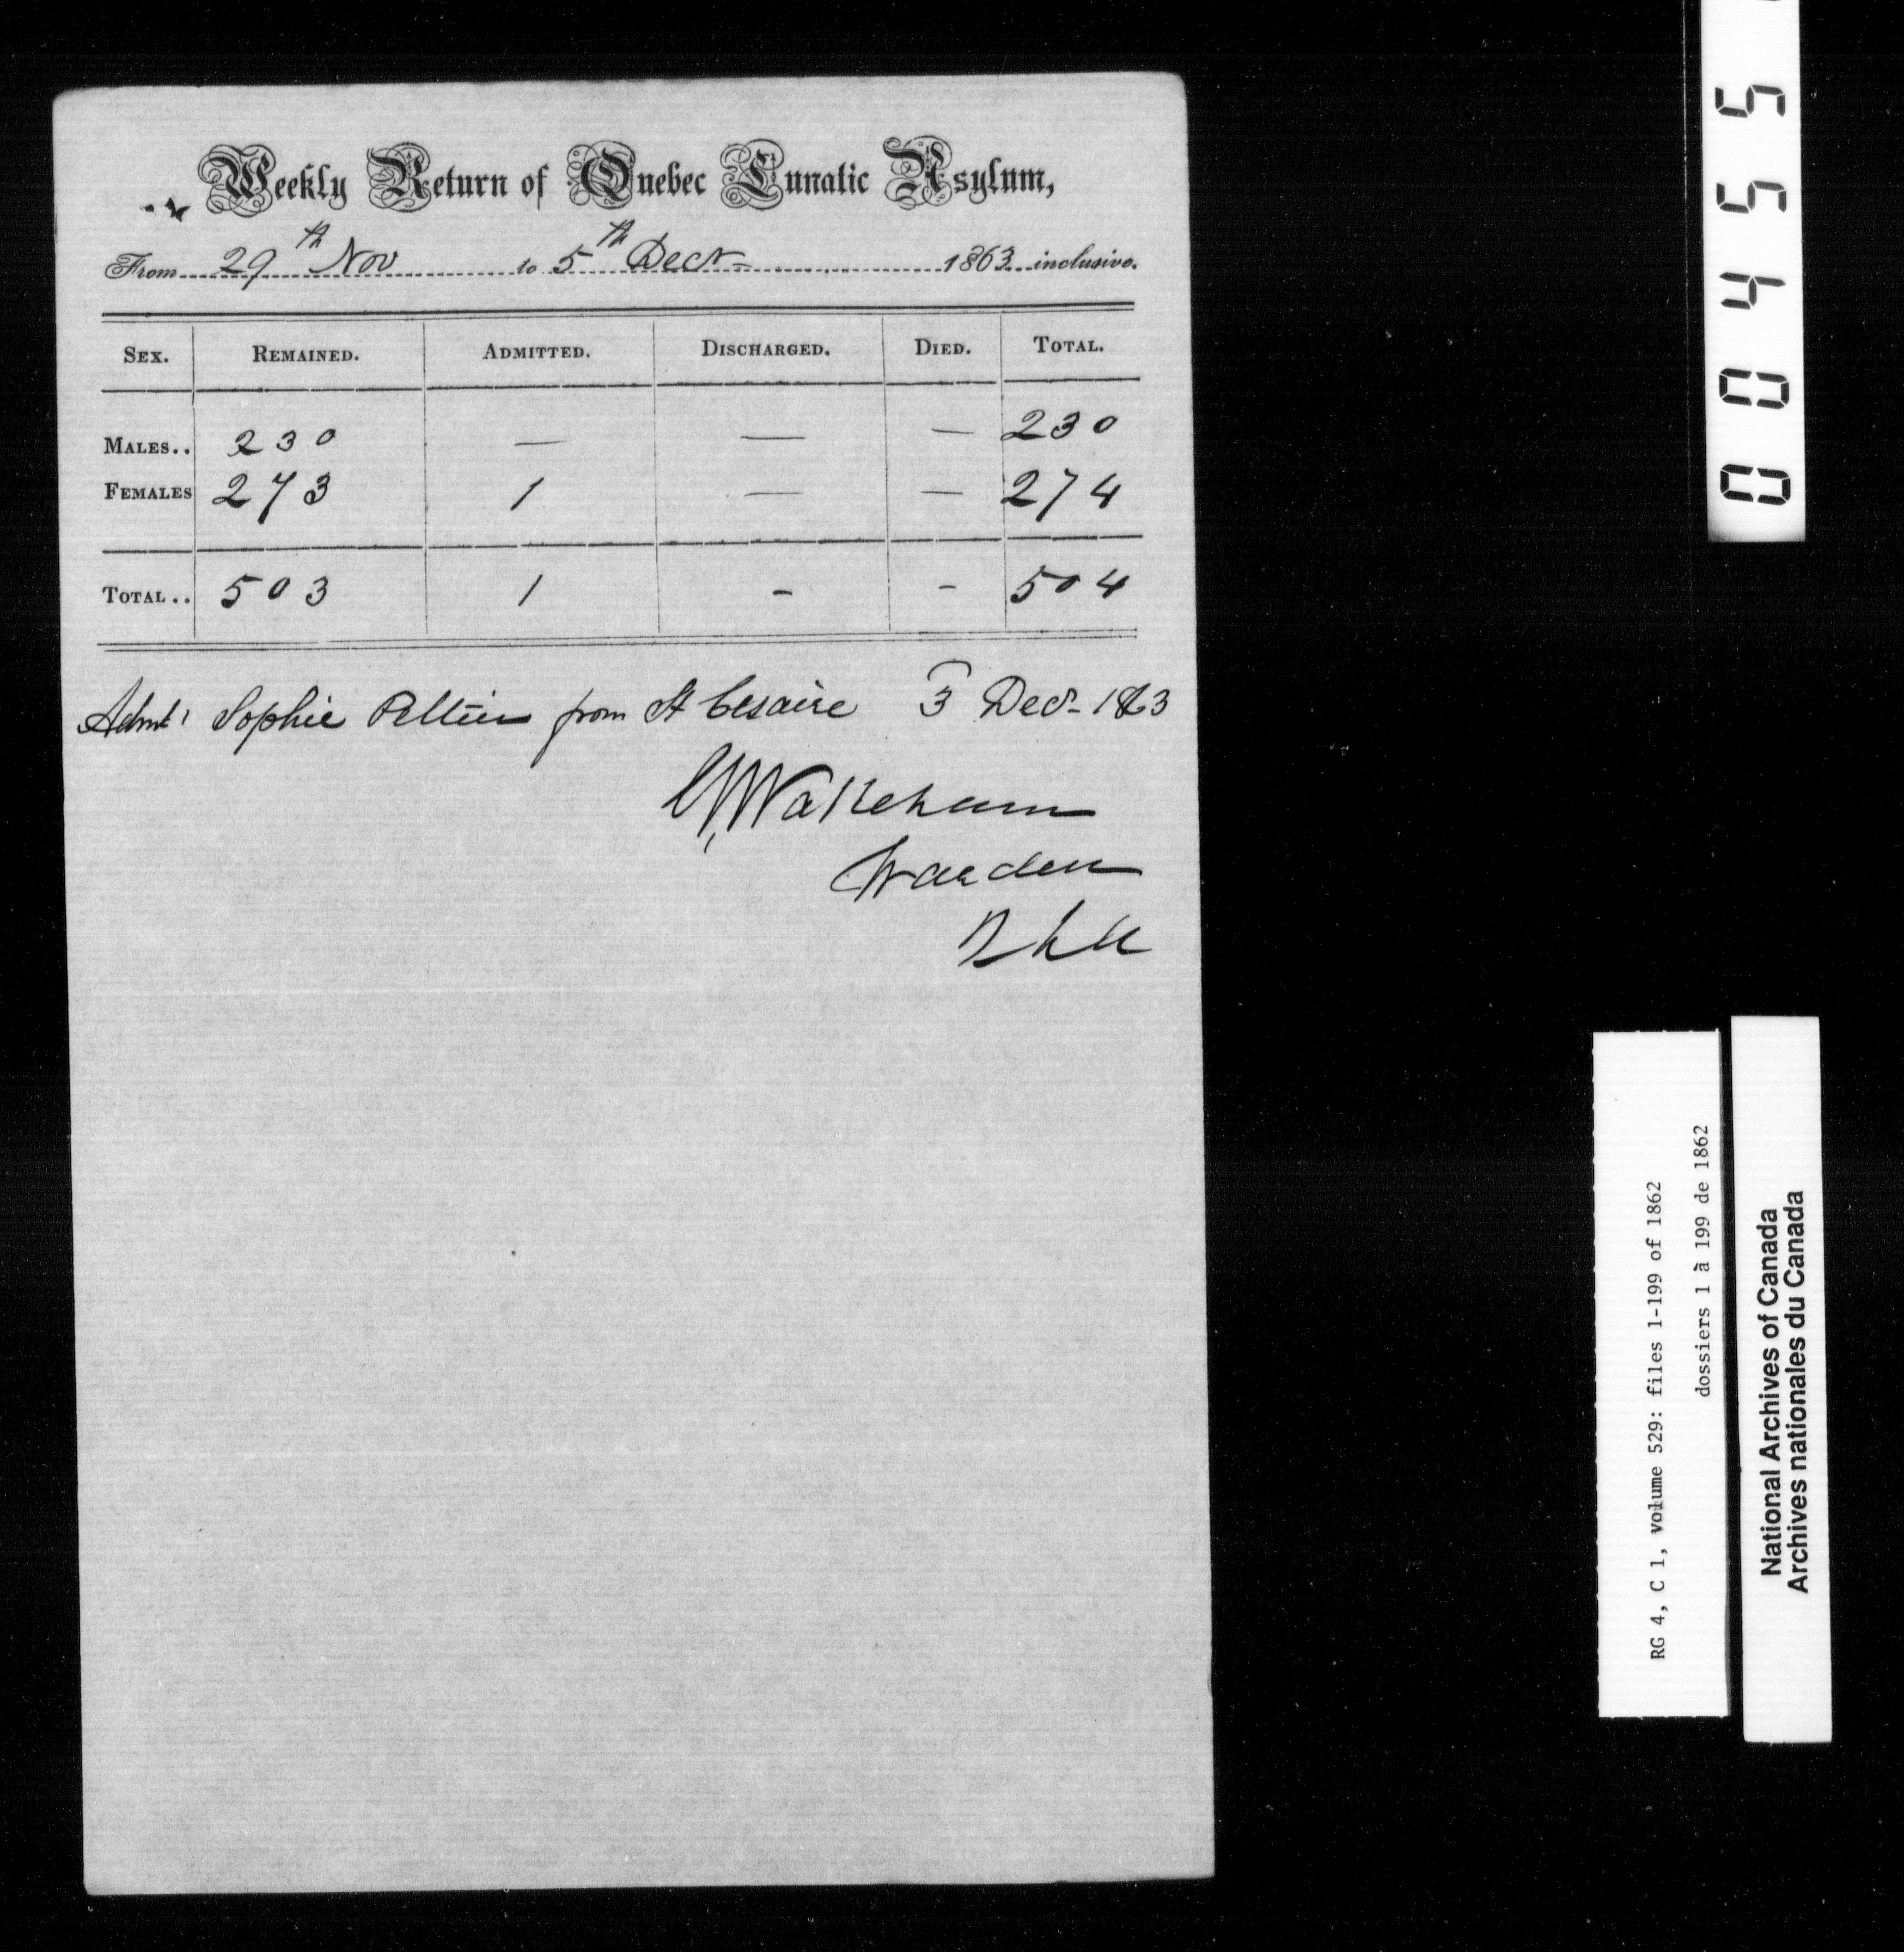 Weekly Return of Quebec Lunatic Asylum,
From 29th Nov to 5th Decr 1863 inclusive.
SEX. REMAINED. ADMITTED. DISCHARGED. DIED. TOTAL.
MALES.. 230 — — — 230
FEMALES 273 1 — — 274
TOTAL.. 503 1 - - 504
Admt Sophie Peltier from St Cesaire 3 Decr 1863
Wakeham
Warden
00455
RG 4, C 1, volume 529: files 1-199 of 1862
dossiers 1 à 199 de 1862
National Archives of Canada
Archives nationales du Canada